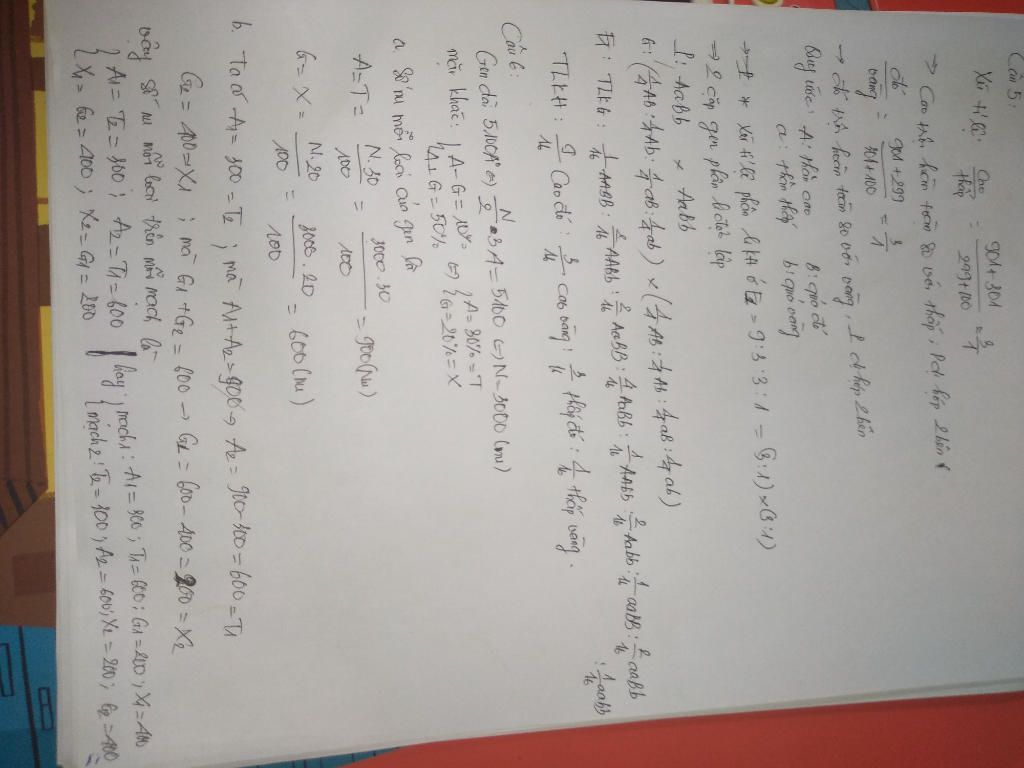 Câu 5:
Xét tỉ lệ: cao/thấp = (901+301)/(299+100) = 3/1
→ Cao trh hoàn toàn so với thấp, P dị hợp 2 bên
đỏ/vàng = (901+299)/(301+100) = 3/1
→ đỏ trh hoàn toàn so với vàng, P dị hợp 2 bên
Quy ước: A: thân cao B: quả đỏ
a: thân thấp b: quả vàng
* Xét tỉ lệ phân li KH ở F2 = 9:3:3:1 = (3:1)×(3:1)
⇒ 2 cặp gen phân li độc lập
P: AaBb × AaBb
G: (1/4AB:1/4Ab:1/4aB:1/4ab) × (1/4AB:1/4Ab:1/4aB:1/4ab)
F1: TLKG: 1/16 AABB: 2/16 AABb: 2/16 AaBB: 4/16 AaBb: 1/16 AAbb: 2/16 Aabb: 1/16 aaBB: 2/16 aaBb
: 1/16 aabb
TLKH: 9/16 Cao đỏ: 3/16 cao vàng: 3/16 thấp đỏ: 1/16 thấp vàng.
Câu 6:
Gen dài 5100A° ⇔ N/2 · 3,4 = 5100 ⇔ N = 3000 (nu)
mặt khác: { A - G = 10% ⇔ { A = 30% = T
A + G = 50% G = 20% = X
a. Số nu mỗi loại của gen là
A = T = N·30/100 = 3000·30/100 = 900 (nu)
G = X = N·20/100 = 3000·20/100 = 600 (nu)
b. Ta có A1 = 300 = T2 ; mà A1 + A2 = 900 → A2 = 900 - 300 = 600 = T1
G2 = 400 = X1 ; mà G1 + G2 = 600 → G1 = 600 - 400 = 200 = X2
Vậy số nu mỗi loại trên mỗi mạch là
{ A1 = T2 = 300 ; A2 = T1 = 600 hay: { mạch 1: A1 = 300 ; T1 = 600 ; G1 = 200 ; X1 = 400
X1 = G2 = 400 ; X2 = G1 = 200 mạch 2: T2 = 300 ; A2 = 600 ; X2 = 200 ; G2 = 400